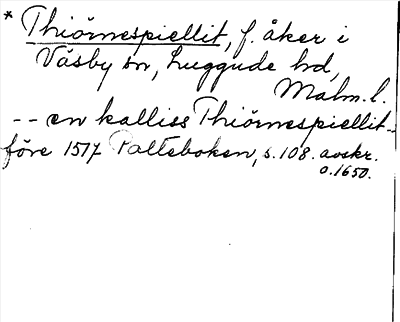 * Thiörnespiellit, f. åker i
Väsby sn, Luggude hd,
Malm. l.
-- en kalliss Thiörnespiellit --
före 1517 Palteboken, s. 108. avskr.
o. 1650.